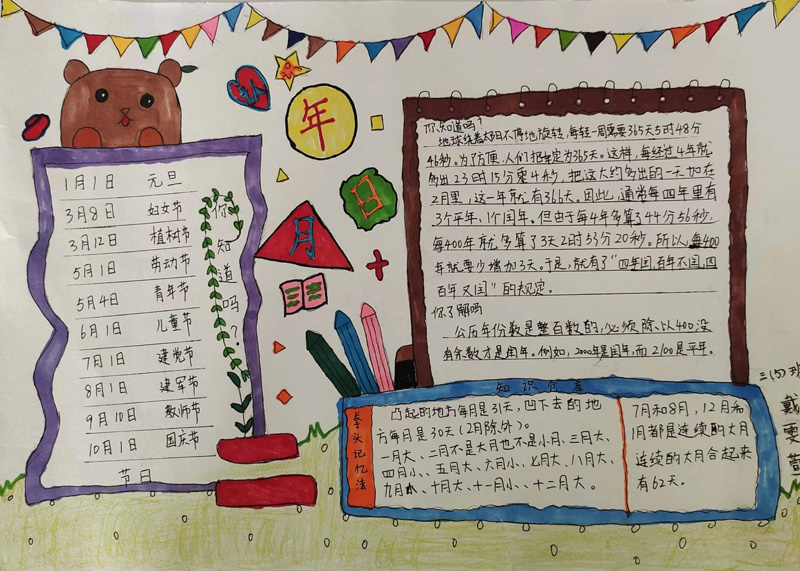 认
识
年
月
日
1月1日 元旦
3月8日 妇女节
3月12日 植树节
5月1日 劳动节
5月4日 青年节
6月1日 儿童节
7月1日 建党节
8月1日 建军节
9月10日 教师节
10月1日 国庆节
节日
你知道吗?
你知道吗?
地球绕着太阳不停地旋转,每转一周需要365天5时48分
46秒。为了方便,人们把一年定为365天。这样,每经过4年就
多出23时15分零4秒,把这大约多出的一天加在
2月里,这一年就有366天。因此,通常每四年里有
3个平年,1个闰年。但由于每4年多算了44分56秒,
每400年就多算了3天2时53分20秒。所以,每400
年就要少增加3天。于是,就有了“四年闰,百年不闰,四
百年又闰”的规定。
你了解吗
公历年份数是整百数的,必须除以400没
有余数才是闰年。例如,2000年是闰年,而2100是平年。
知识仓库
拳头记忆法
凸起的地方每月是31天,凹下去的地
方每月是30天(2月除外)。
一月大、二月不是大月也不是小月、三月大、
四月小、五月大、六月小、七月大、八月大、
九月小、十月大、十一月小、十二月大。
7月和8月,12月和
1月都是连续的大月
连续的大月合起来
有62天。
三(5)班
戴
雯
萱